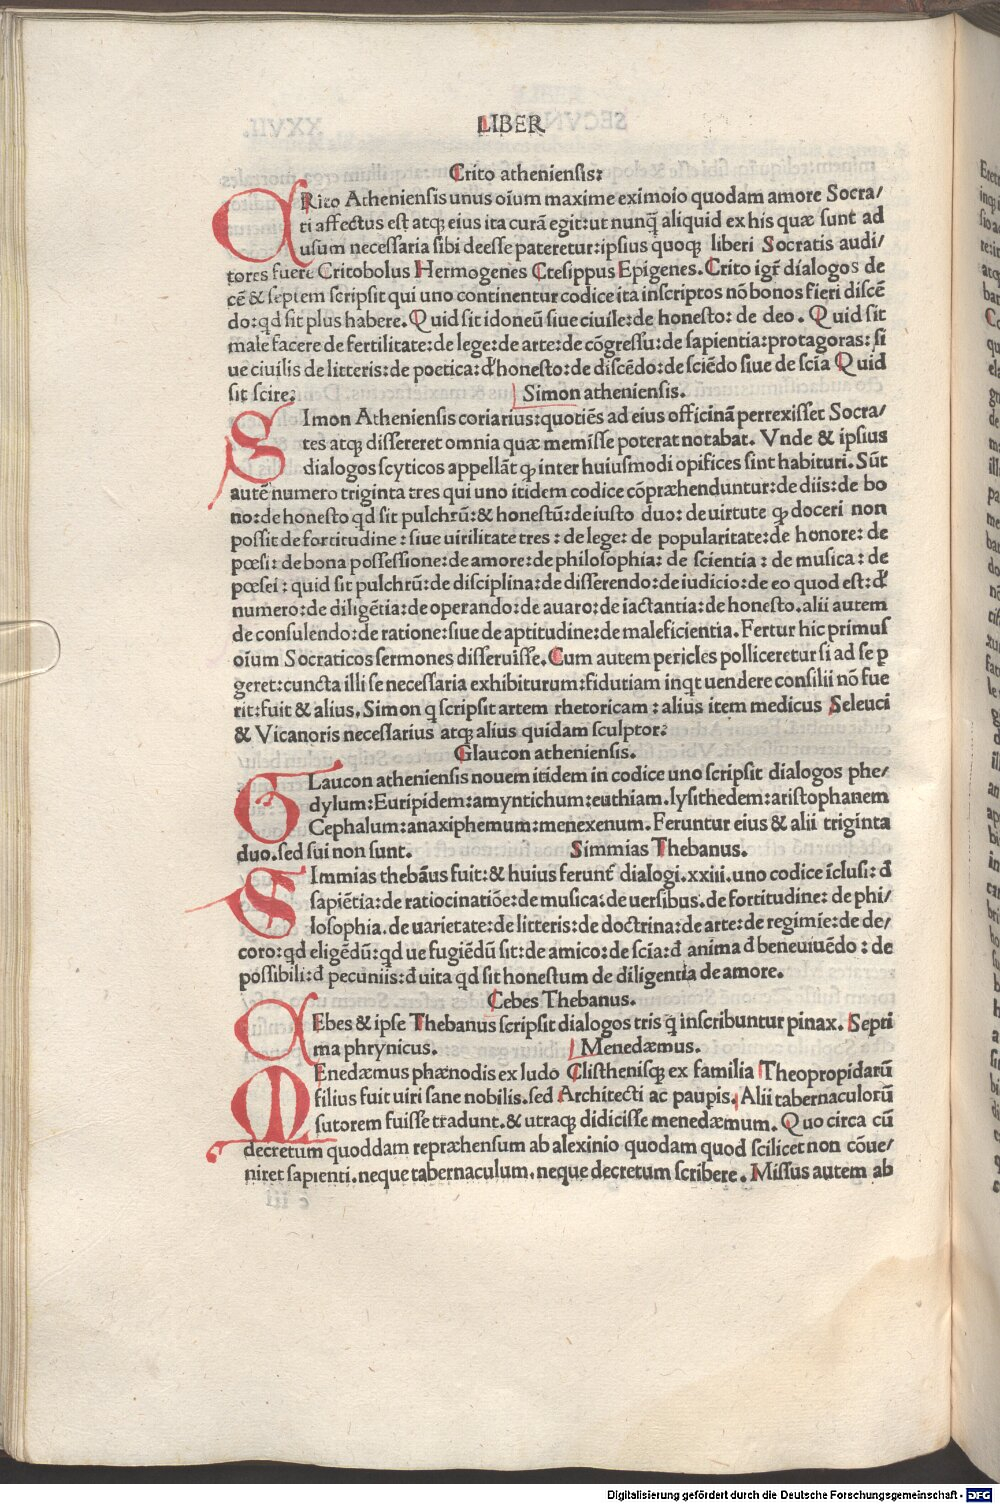 LIBER
Crito atheniensis:
CRito Atheniensis unus oīum maxime eximoio quodam amore Socra/
ti affectus est atqꝫ eius ita curā egit:ut nunq̄ aliquid ex his quæ sunt ad
usum necessaria sibi deesse pateretur:ipsius quoqꝫ liberi Socratis audi/
tores fuere Critobolus Hermogenes Ctesippus Epigenes. Crito igr̄ díalogos de
cē & septem scripsit qui uno continentur codice ita inscriptos nō bonos fieri discē
do:qd sit plus habere. Quid sit idoneū siue ciuile:de honesto: de deo. Quid sit
male facere de fertilitate:de lege:de arte:de cōgressu:de sapientia:protagoras: si
ue ciuilis de litteris:de poetica:d' honesto:de discēdo:de sciēdo siue de scīa Quid
sit scire:
Simon atheniensis.
SImon Atheniensis coriarius:quotiēs ad eius officinā perrexisset Socra/
tes atqꝫ dissereret omnia quæ memisse poterat notabat. Vnde & ipsius
dialogos scyticos appellāt qꝫ inter huiusmodi opifices sint habituri. Sūt
autē numero triginta tres qui uno itidem codice cōpræhenduntur:de diis:de bo
no:de honesto qd sit pulchrū:& honestū:de iusto duo: de uirtute qꝫ doceri non
possit de fortitudine : siue uirilitate tres : de lege: de popularitate:de honore: de
pœsi: de bona possessione:de amore:de philosophia: de scientia : de musica : de
pœsei : quid sit pulchrū:de disciplina:de disserendo:de iudicio:de eo quod est:d'
numero:de diligētia:de operando:de auaro:de iactantia:de honesto.alii autem
de consulendo:de ratione:siue de aptitudine:de maleficientia. Fertur hic primus
oīum Socraticos sermones disseruisse. Cum autem pericles polliceretur si ad se p
geret:cuncta illi se necessaria exhibiturum:fidutiam inqt uendere consilii nō fue
rit:fuit & alius. Simon q scripsit artem rhetoricam : alius item medicus Seleuci
& Vicanoris necessarius atqꝫ alius quidam sculptor:
Glaucon atheniensis.
GLaucon atheniensis nouem itidem in codice uno scripsit dialogos phe/
dylum:Euripidem:amyntichum:euthiam.lysithedem:aristophanem
Cephalum:anaxiphemum:menexenum. Feruntur eius & alii triginta
duo.sed sui non sunt.
Simmias Thebanus.
SImmias thebāus fuit:& huius ferunt̄ dialogi.xxiii.uno codice īclusi: đ
sapiētia:de ratiocinatiōe:de musica:de uersibus.de fortitudine: de phi/
losophia.de uarietate:de litteris:de doctrina:de arte:de regimīe:de de/
coro:qd eligēdū:qd ue fugiēdū sit:de amico:de scīa:đ anima đ beneuiuēdo : de
possibili:đ pecuniis:đ uita qd sit honestum de diligentia de amore.
Cebes Thebanus.
CEbes & ipse Thebanus scripsit dialogos tris q̄ inscribuntur pinax. Septi
ma phrynicus.
Menedæmus.
MEnedæmus phænodis ex ludo Clisthenisqꝫ ex familia Theopropidarū
filius fuit uiri sane nobilis.sed Architecti ac paupis. Alii tabernaculorū
sutorem fuisse tradunt.& utraqꝫ didicisse menedæmum. Quo circa cū
decretum quoddam repræhensum ab alexinio quodam quod scilicet non cōue/
niret sapienti.neque tabernaculum.neque decretum scribere. Missus autem ab
Digitalisierung gefördert durch die Deutsche Forschungsgemeinschaft - DFG